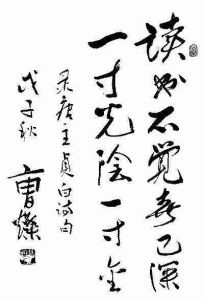 读书不觉春已深
一寸光阴一寸金
录唐王贞白诗句
戊子秋
曹灿